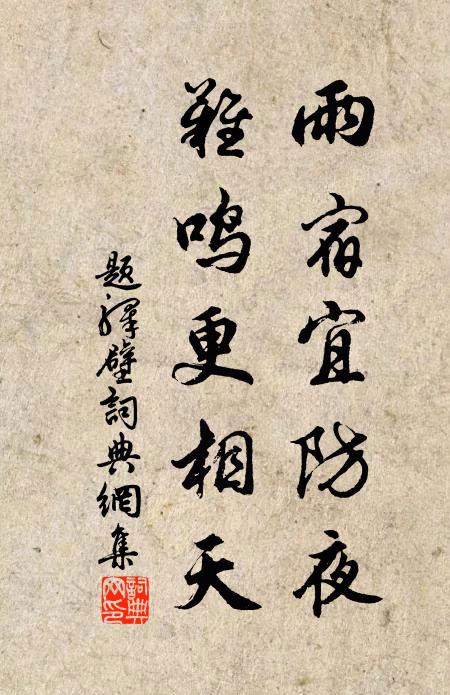 雨宿宜防夜
雞鳴更相天
題驛壁詞典網集
詞典网印